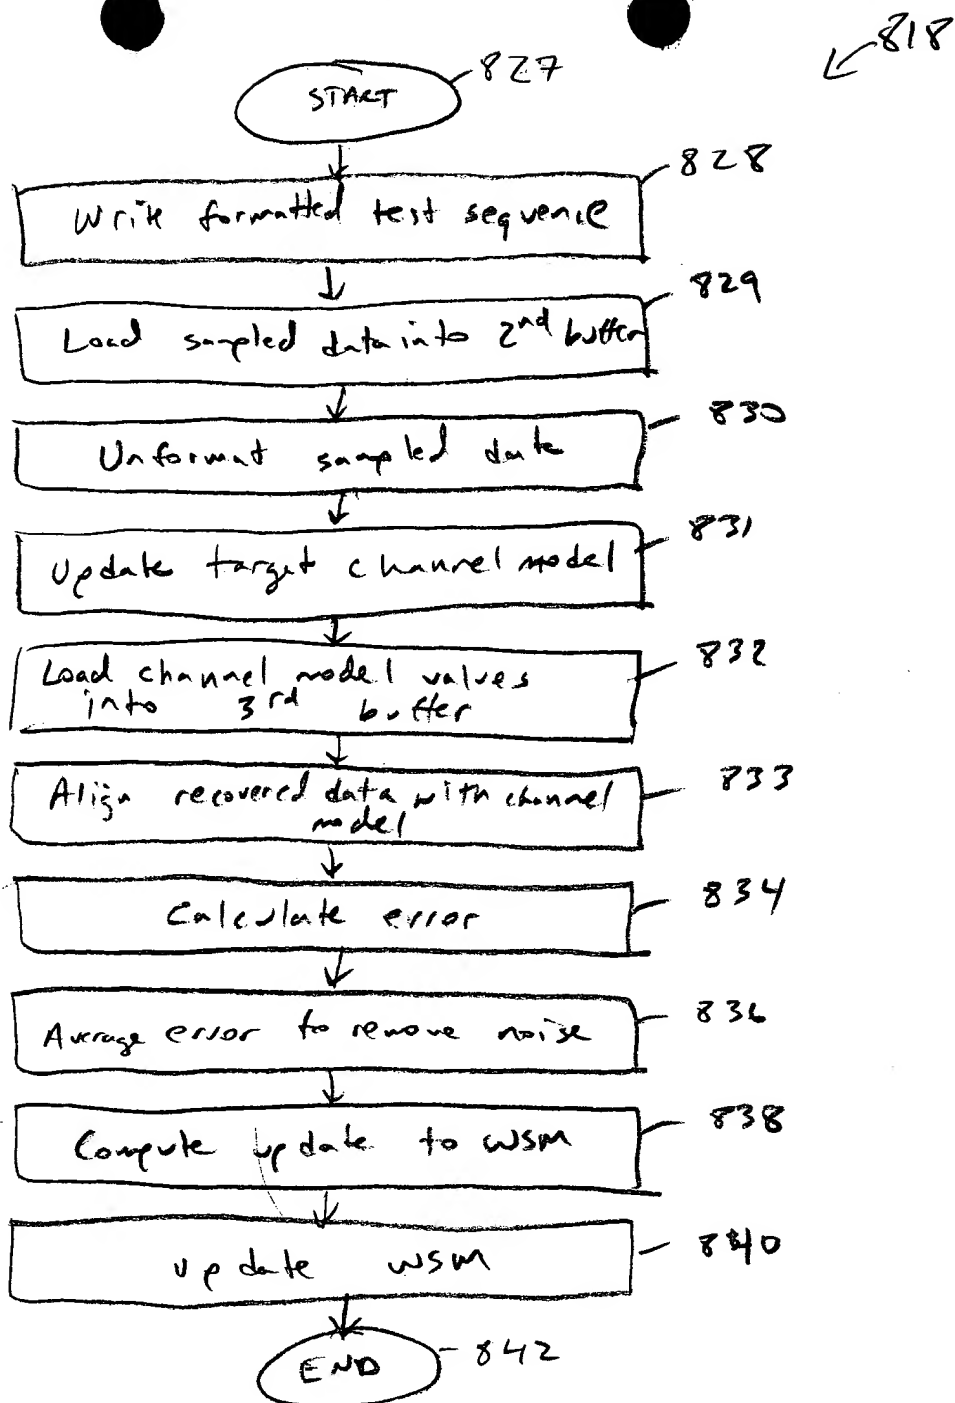 818
START
827
828
Write formatted test sequence
829
Load sampled data into 2nd buffer
830
Unformat sampled data
831
Update target channel model
832
Load channel model values
into 3rd buffer
833
Align recovered data with channel
model
834
Calculate error
836
Average error to remove noise
838
Compute update to WSM
840
update WSM
END
842